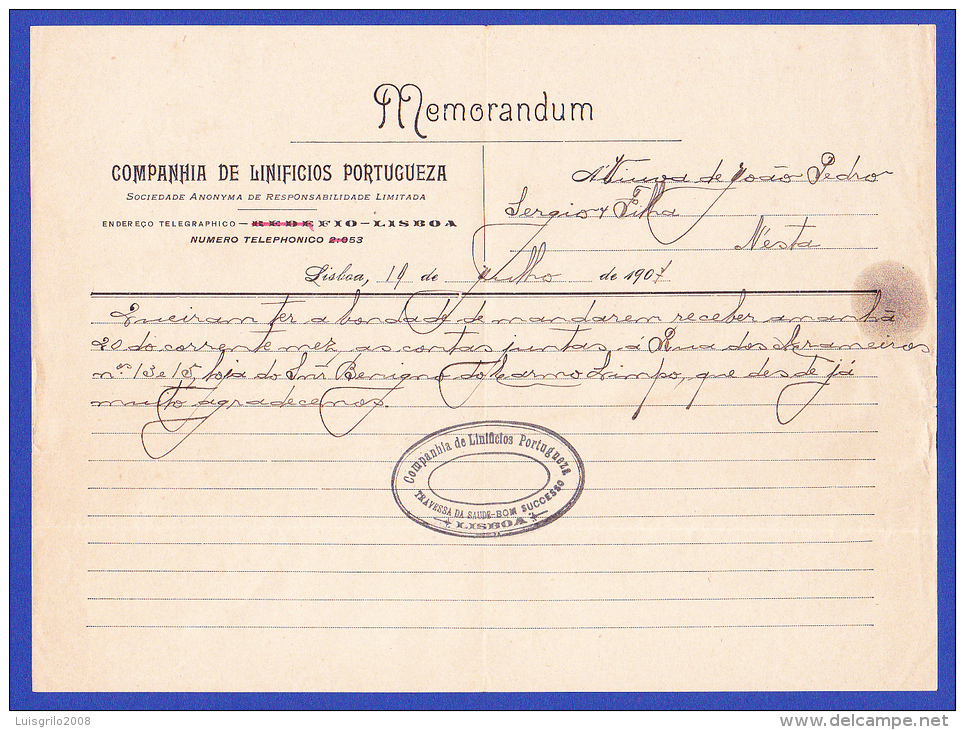 Memorandum
COMPANHIA DE LINIFICIOS PORTUGUEZA
SOCIEDADE ANONYMA DE RESPONSABILIDADE LIMITADA
ENDEREÇO TELEGRAPHICO – REDEFIO – LISBOA
NUMERO TELEPHONICO 2:053
Á Viuva de João Pedro
Sergio & Filha
N'esta
Lisboa, 19 de Julho de 1907
Queiram ter a bondade de mandarem receber amanhã
20 do corrente mez, as contas juntas, á Rua dos Arameiros
nos. 13 e 15, loja do Snr. Benigno do Carmo Limpo, que desde já
muito agradecemos.
Companhia de Linificios Portugueza
TRAVESSA DA SAUDE-BOM SUCCESSO
LISBOA
Luisgrilo2008
www.delcampe.net